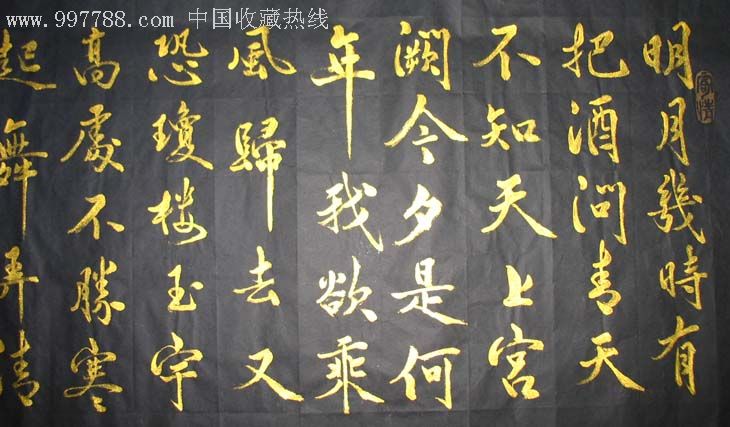 www.997788.com 中国收藏热线
明月幾時有
把酒问青天
不知天上宫
阙今夕是何
年我欲乘
風歸去又
恐瓊楼玉宇
高處不勝寒
起舞弄清